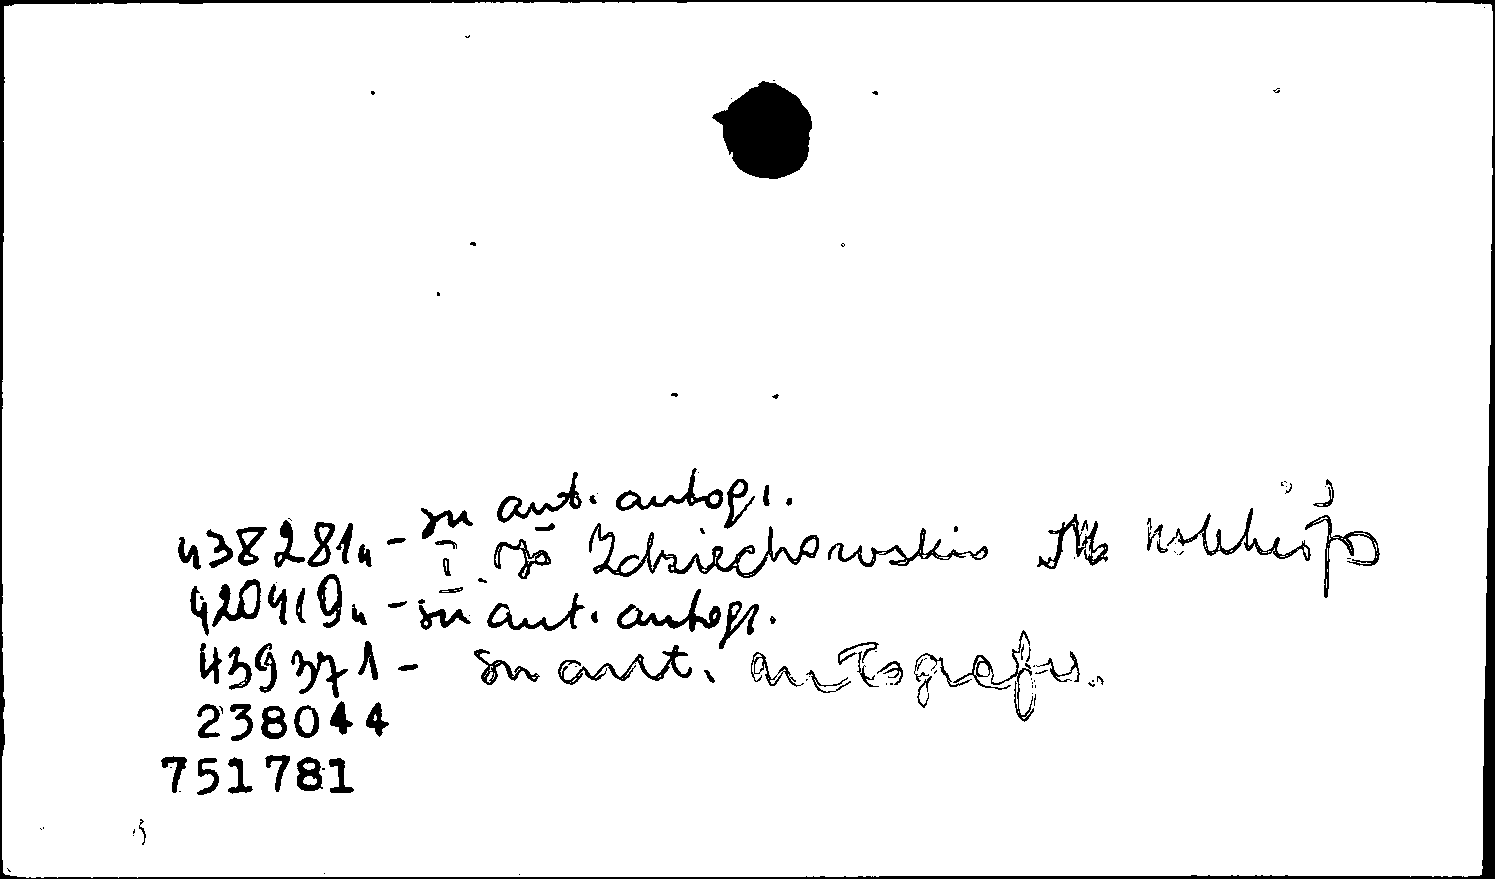 438281u - su aut. autogr.
Iš Zdziechowskio M. kolekcijos
420419u - su aut. autogr.
439371 - su aut. autografu.
238044
751781